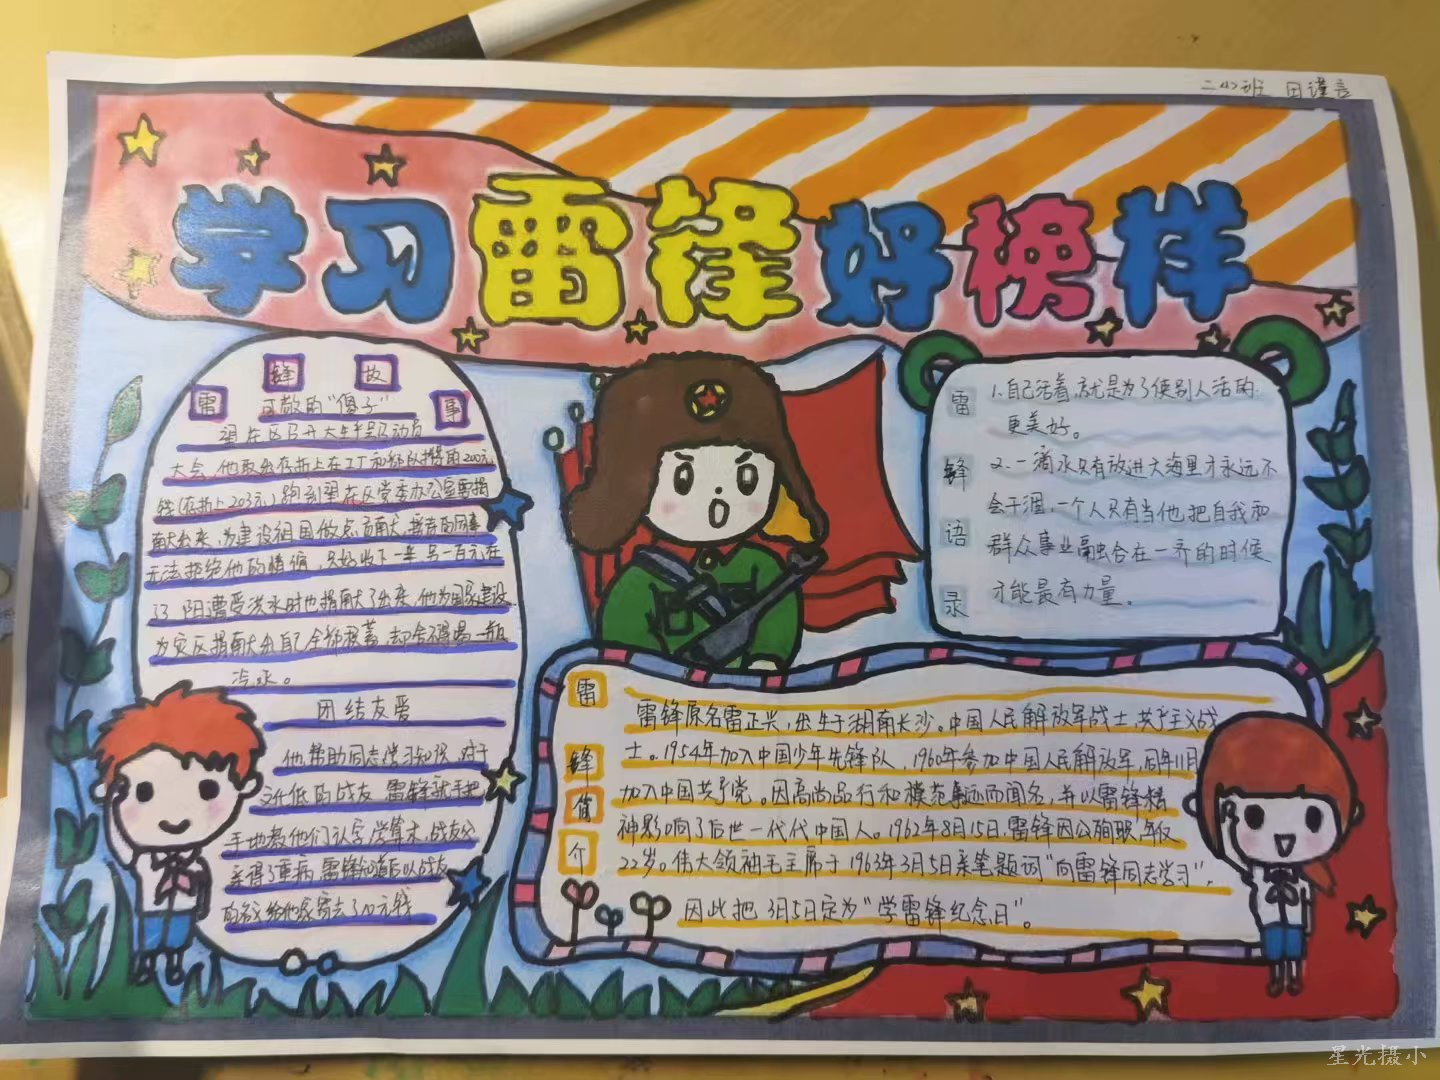 二(4)班 田谨言
学习雷锋好榜样
雷锋故事
可敬的“傻子”
望花区召开大生产运动员
大会,他取出存折上在工厂和部队攒的200元
钱(存折上203元),跑到望花区党委办公室要捐
献出来,为建设祖国做点贡献,接待的同事
无法拒绝他的情谊,只好收下一半。另一百元在
辽阳遭受洪水时也捐献了出来。他为国家建设
为灾区捐献出自己全部积蓄,却舍不得喝一瓶
汽水。
团结友爱
他帮助同志学习知识,对于
文化低的战友,雷锋就手把
手地教他们认字,学算术,战友父
亲得了重病,雷锋知道后以战友
的名义给他家寄去了10元钱
雷锋语录
1.自己活着,就是为了使别人活的
更美好。
2.一滴水只有放进大海里才永远不
会干涸,一个人只有当他把自我和
群众事业融合在一齐的时候
才能最有力量。
雷锋简介
雷锋原名雷正兴,出生于湖南长沙。中国人民解放军战士,共产主义战
士。1954年加入中国少年先锋队,1960年参加中国人民解放军,同年11月
加入中国共产党。因高尚品行和模范事迹而闻名,并以雷锋精
神影响了后世一代代中国人。1962年8月15日,雷锋因公殉职,年仅
22岁。伟大领袖毛主席于1963年3月5日亲笔题词“向雷锋同志学习”,
因此把3月5日定为“学雷锋纪念日”。
星光摄小